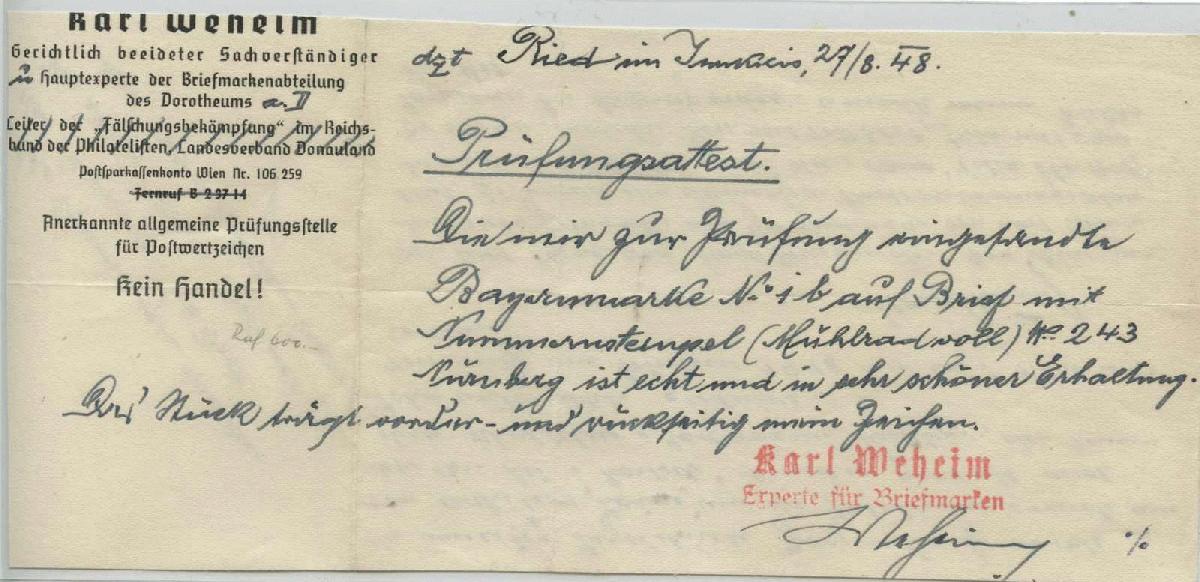 Karl Weheim
Gerichtlich beeideter Sachverständiger
u Hauptexperte der Briefmarkenabteilung
des Dorotheums a. D
Leiter der „Fälschungsbekämpfung“ im Reichs-
bund der Philatelisten, Landesverband Donauland
Postsparkassenkonto Wien Nr. 106 259
Fernruf B-2-97-14
Anerkannte allgemeine Prüfungsstelle
für Postwertzeichen
Kein Handel!
600.—
dzt Ried im Innkreis, 27/8. 48.
Prüfungsattest.
Die mir zur Prüfung eingesandte
Bayernmarke No 1 b auf Brief mit
Nummernstempel (Mühlrad voll) No 243
Nürnberg ist echt und in sehr schöner Erhaltung.
Das Stück trägt vorder- und rückseitig mein Zeichen.
Karl Weheim
Experte für Briefmarken
Weheim